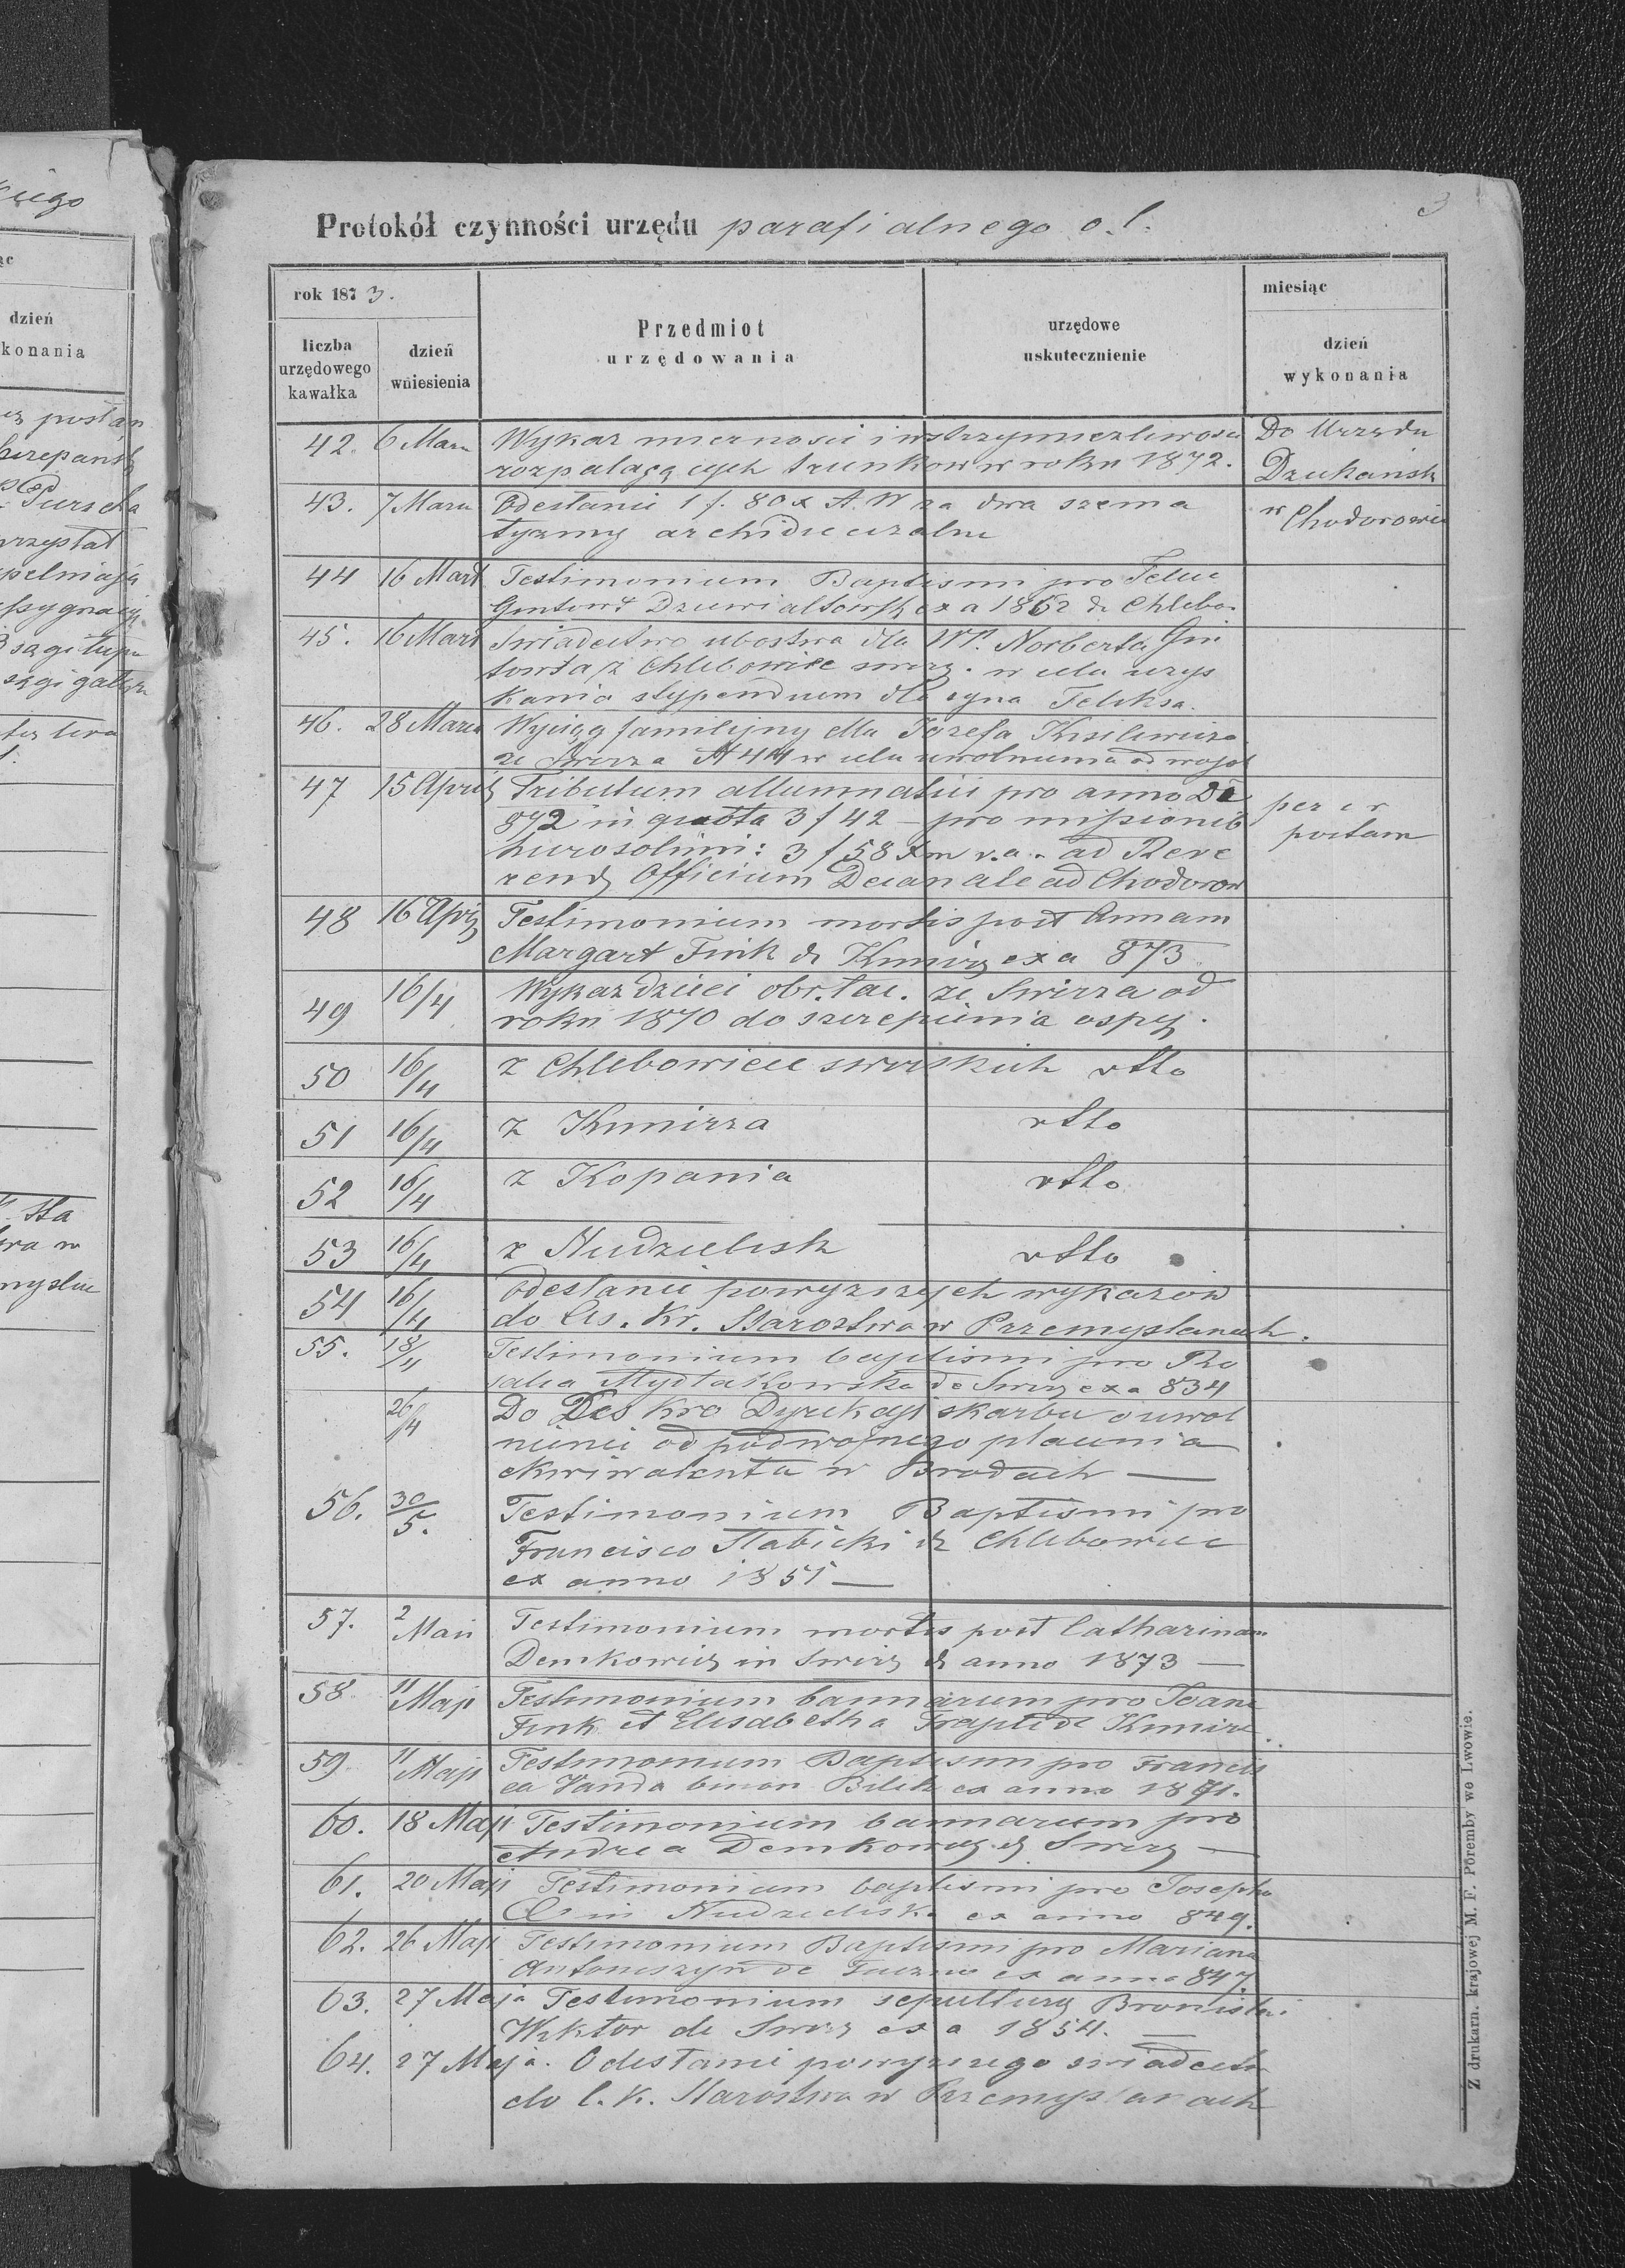 3
Protokół czynności urzędu parafialnego o. l.
rok 1873.
miesiąc
liczba urzędowego kawałka
dzień wniesienia
Przedmiot urzędowania
urzędowe uskutecznienie
dzień wykonania
42. 6 Marca Wykaz mierności i wstrzymięzliwości Do Urzędu
rozpalających trunkow w roku 1872. Dziekańsk
43. 7 Marca Odesłanie 1 f. 80 x A. W za dwa szema w Chodorowie
tyzmy archidiecezalne
44 16 Mart Testimonium Baptismi pro Felice
Gintowt Dziewiałtowski ex a 1862 de Chlebo
45. 16 Mart Swiadectwo ubostwa dla WP. Norberta Gin
towta z Chlebowice swirz. w celu uzys
kania stypendium dla syna Feliksa.
46. 28 Marca Wyciąg familijny dla Józefa Kisilewicza
ze Swirza N 44 w celu uwolnienia od wojsk
47 15 April Tributum allumnatici pro anno
872 in quota 3 f 42 – pro missionib per c r
hierosolimi: 3 f 58 v.a. ad Reve postam
rend Officium Decanale ad Chodorow
48 16 April Testimonium mortis post Annam
Margart Fink de Kimirz ex a 873
49 16/4 Wykaz dzieci obr. łac. ze Swirza od
roku 1870 do szczepienia ospy.
50 16/4 z Chlebowice swirskich dtto
51 16/4 z Kimirza dtto
52 16/4 z Kopania dtto
53 16/4 z Niedzielisk dtto
54 16/4 Odesłanie powyzszych wykazow
do Ces. Kr. Starostwa w Przemyslanach.
55. 18/4 Testimonium baptismi pro Ro
salia Mydłakowska de Swirz ex a 834
26/4 Do Kro Dyrekcyi skarbu o uwol
nienie od podwojnego płacenia
ekwiwalentu w Brodach —
56. 30/5. Testimonium Baptismi pro
Francisco Słabicki de Chlebowice
ex anno 1851 —
57. 2 Maii Testimonium mortis post Catharinam
Demkowicz in Swirz de anno 1873 —
58. 11 Maji Testimonium bannorum pro Joane
Fink et Elisabetha de Kimirz
59. 11 Maji Testimonium Baptismi pro Francis
ca Vanda Bilik ex anno 1871.
60. 18 Maji Testimonium bannarum pro
Andrea Demkowicz de Swirz —
61. 20 Maji Testimonium baptismi pro Josepho
in Niedzieliska ex anno 849.
62. 26 Maji Testimonium Baptismi pro Mariana
Antoniszyn de ex anno 847.
63. 27 Maja Testimonium sepultury Bronisła.
Wiktor de Swirz ex a 1854. —
64. 27 Maja. Odesłanie powyzszego swiadectw
do C. K. Starostwa w Przemyslanach
Z drukarn. krajowej M. F. Poremby we Lwowie.
iego
ąc
dzień
konania
przystał
Purscha